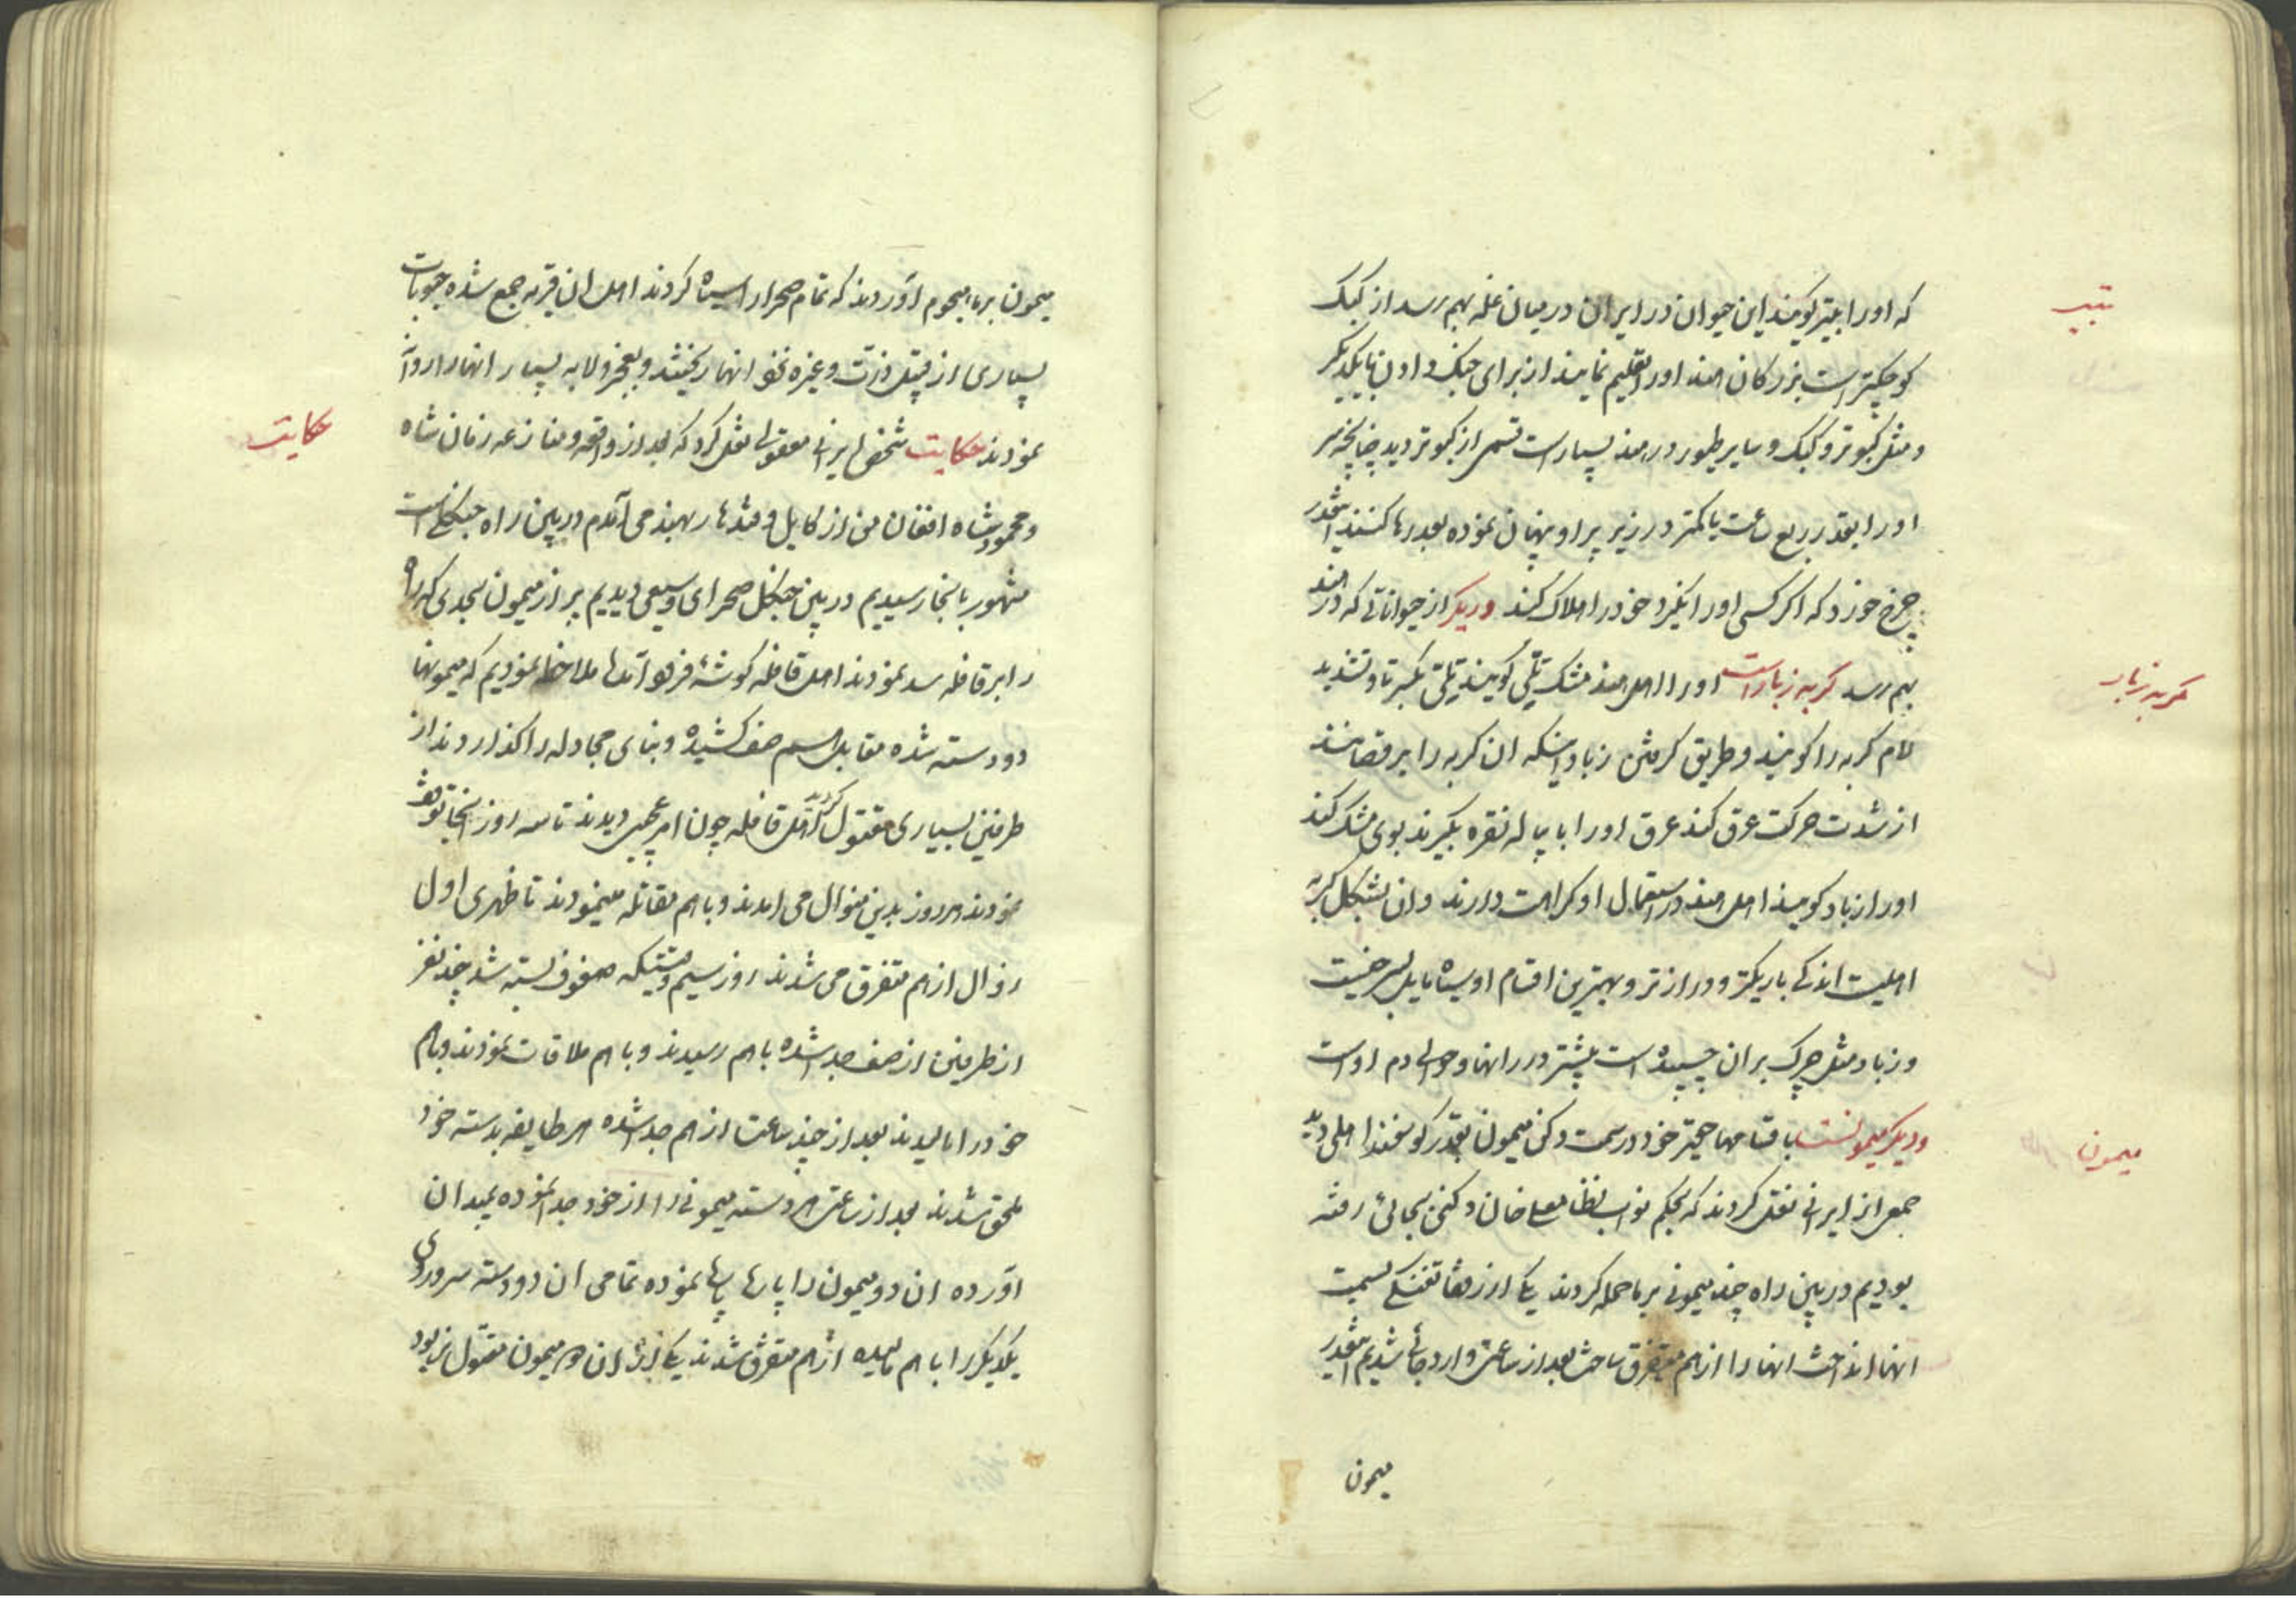 که او را بتیر کویند این حیوان در ایران در میان غله بهم رسد از کبک
تیتر
کوچکتر است بزرکان هند او را تعلیم نمایند از برای جنک و اون با یکدیکر
و مثل کبوتر و کبک و سایر طیور در هند بسیار است قسمی از کبوتر دیدم چنانچه سر
او را بقدر ربع ساعت یا کمتر در زیر پر او پنهان نموده بعد رها کنند انقدر
چرخ خورد که اکر کسی او را نکیرد خود را هلاک کند و دیکر از حیواناتی که در هند
بهم رسد کربه زباد است او را اهل هند مشک تلّی کویند تلّی بکسر تا و تشدید
کربه زباد
لام کربه را کویند و طریق کرفتن زباد اینکه ان کربه را برقصانند
از شدت حرکت عرق کند عرق او را با پیاله نقره بکیرند بوی مشک کند
او را زباد کویند اهل هند در استعمال او کراهت دارند و ان بشکل کربه
اهلیست اندکی باریکتر و درازتر و بهترین اقسام او سیاه مایل بسرخیست
و زباد مثل چرک بر ان چسپیده است بیشتر در رانها و حوالی دم اوست
و دیکر میمونست باقسامها حیجتر خود درست دکنی میمون بقدر کوسفند اهلی دیده
میمون
جمعی از ایرانی نقل کردند که بحکم نواب نظامعلی خان دکنی بجائی رفته
بودیم در بین راه چند میمونی بر ما حمله کردند یکی از رفقا تفنکی بسمت
انها انداخت انها را از هم متفرق ساخت بعد از ساعتی وارد جائی شدیم انقدر
میمون
میمون بر ما هجوم اوردند که تمام صحرا را سیاه کردند اهل ان قریه جمع شده حبوبات
بسیاری از قبیل ذرّت و غیره نخود انها ریختند و بعجز و لابه بسیار انها را روا
نمودند حکایت شخص ایرانی معقولی نقل کرد که بعد از واقعه و منازعه زمان شاه
حکایت
و محمود شاه افغان من از کابل و قندهار بهند می آمدم در بین راه جنکلی است
مشهور بانجا رسیدیم در بین جنکل صحرای وسیعی دیدیم پر از میمون بحدی که راه
را بر قافله سد نمودند اهل قافله کوشه فرود آمدها ملاحظه نمودیم که میمونها
دو دسته شده مقابل هم صف کشیده و بنای مجادله را کذاردند از
طرفین بسیاری مقتول کردید اهل قافله چون امر عجیبی دیدند تا سه روز انجا توقف
نمودند هر روز بدین منوال می امدند و با هم مقاتله مینمودند تا ظهری اول
زوال از هم متفرق می شدند روز سیم وقتیکه صفوف بسته شد چند نفر
از طرفین از صف جدا شده با هم رسیدند و با هم ملاقات نمودند و با هم
خود را مالیدند بعد از چند ساعت از هم جدا شده هر طایفه بدسته خود
ملحق شدند بعد از ساعتی هر دسته میمونی را از خود جدا نموده بمیدان
اورده ان دو میمون را پارها پارها نموده تمامی ان دو دسته سر و روی
یکدیکر را با هم مالیده از هم متفرق شدند یکی از ان دو میمون مقتول نر بود